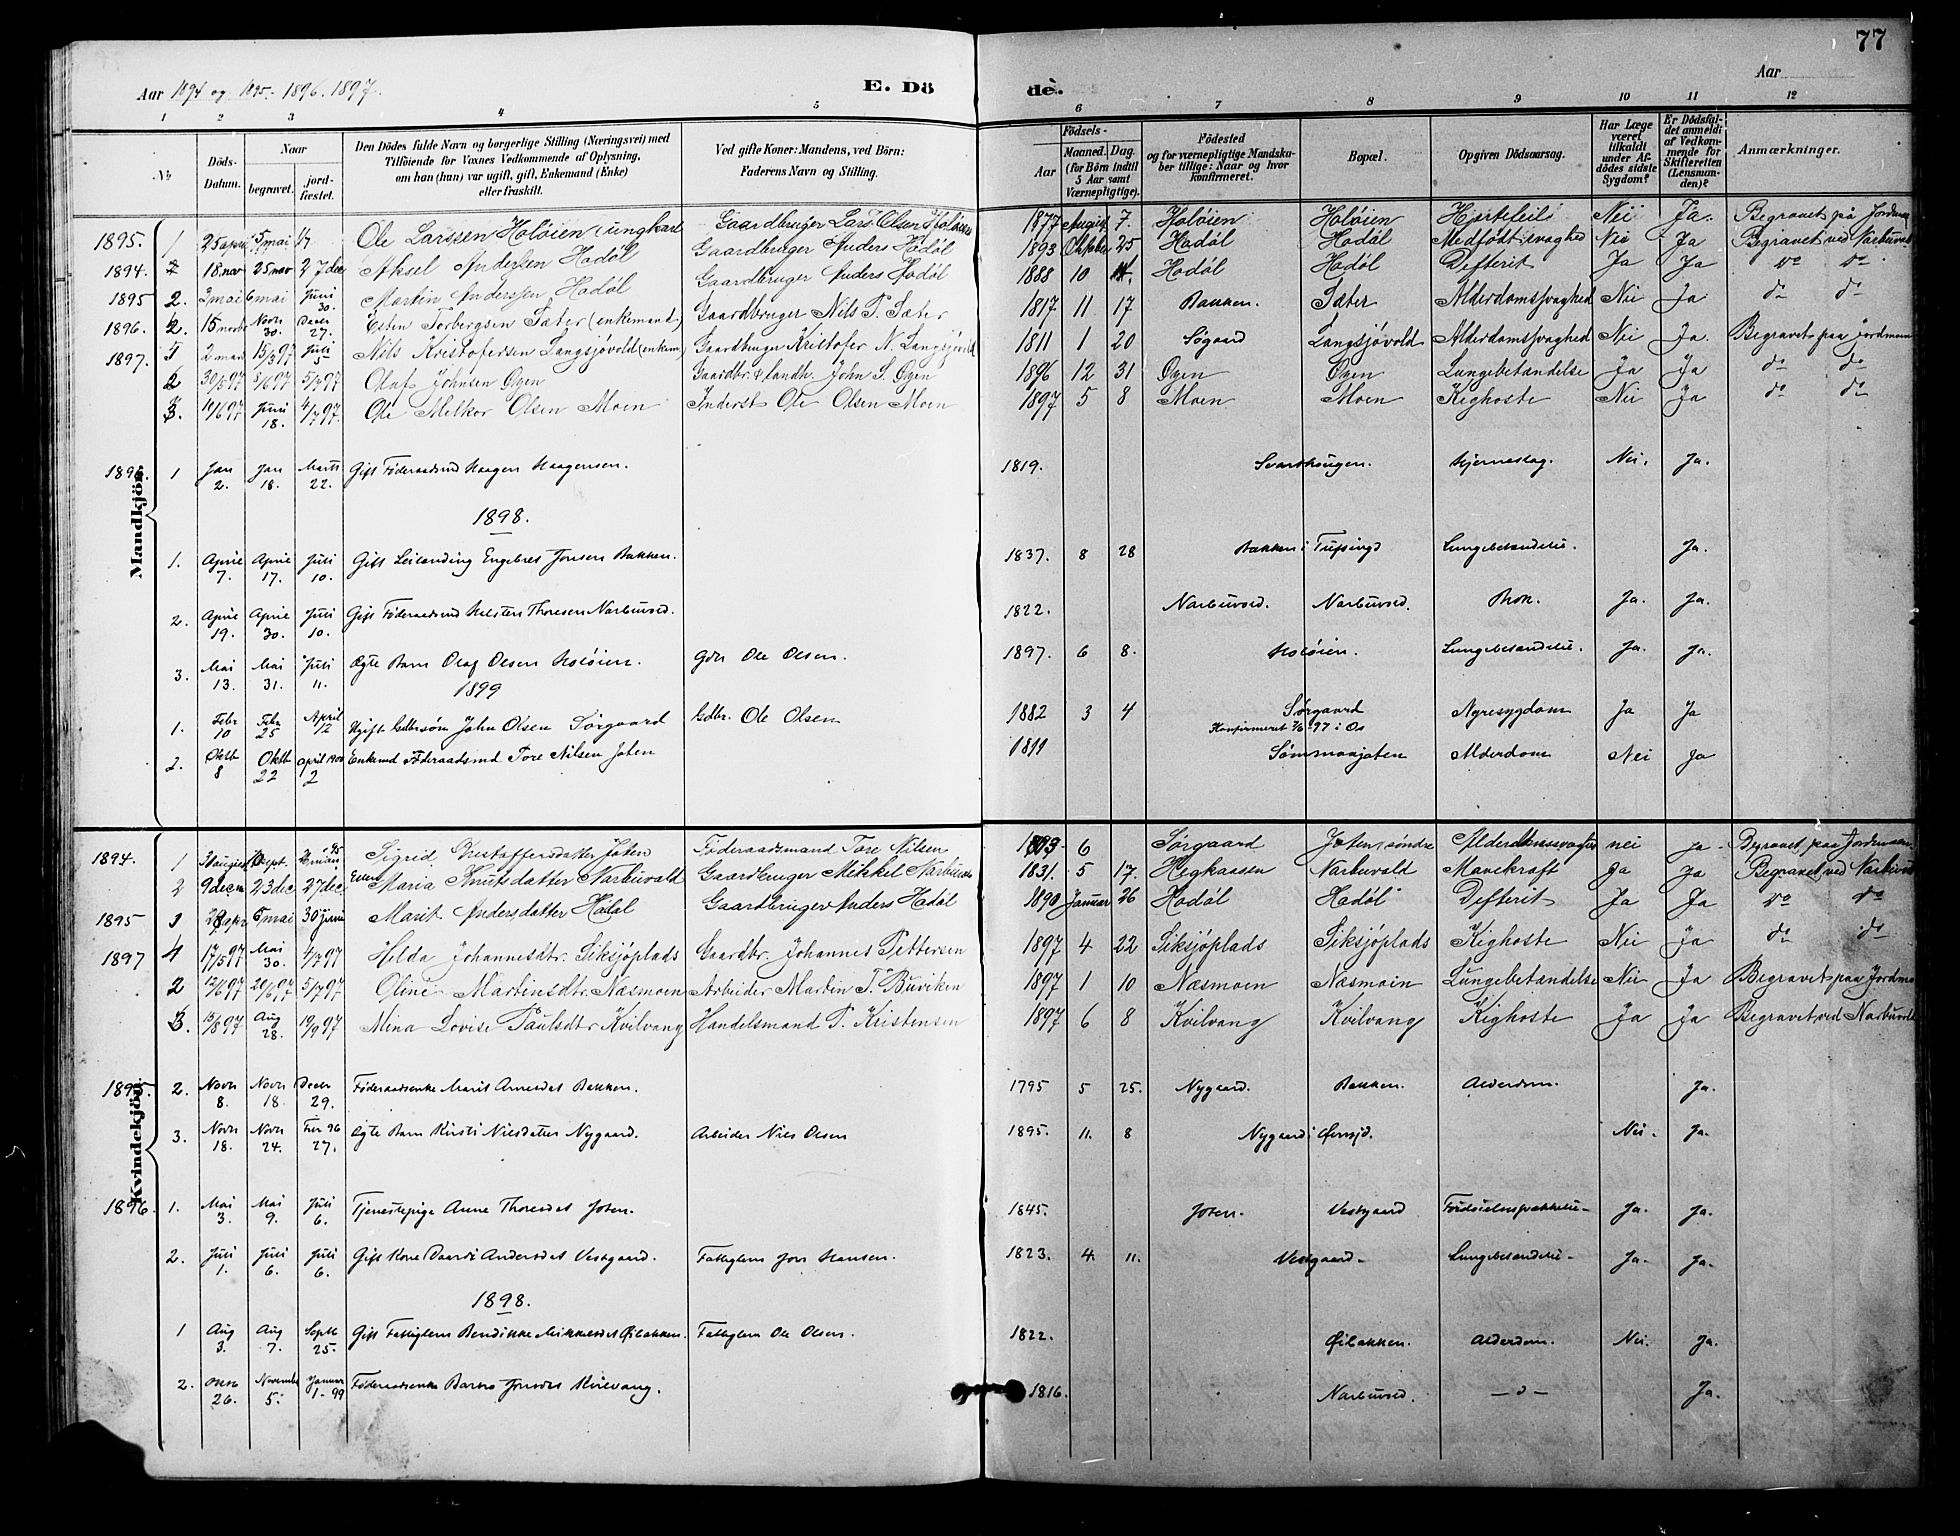 77
Aar 1894 og 1895. 1896. 1897.
E. Dö
de.
Aar
1 2 3 4 5 6 7 8 9 10 11 12
No
Döds-Datum.
Naar
begravet.
jord-fæstet.
Den Dödes fulde Navn og borgerlige Stilling (Næringsvei) med Tilföiende for Voxnes Vedkommende af Oplysning, om han (hun) var ugift, gift, Enkemand (Enke) eller fraskilt.
Ved gifte Koner: Mandens, ved Börn: Faderens Navn og Stilling.
Födsels-
Aar
Maaned.
Dag
(for Börn indtil 5 Aar samt Værnepligtige).
Födested og for værnepligtige Mandskaber tillige: Naar og hvor konfirmeret.
Bopæl.
Opgiven Dödsaarsag.
Har Læge været tilkaldt under Afdödes sidste Sygdom?
Er Dödsfaldet anmeldt af Vedkommende for Skifteretten (Lensmanden)?
Anmærkninger.
Mandkjön.
1895. 1 25 april 5 mai Ole Larssen Holøien (ungkarl Gaardbruger Lars Olsen Holøien 1877 August 7. Holøien Holøien Hjertefeil Nei Ja. Begravet på Jordmoen
1894. 18. nov 25 nov 27 dec Aksel Anderssen Hodøl Gaardbruger Anders Hodøl 1893 Oktober 25 Hodøl Hodøl Medfødt svaghed Nei Ja Begravet ved Narbuvol
1895 2. 2 mai 6 mai Juni 30. Martin Anderssen Hodøl Gaardbruger Anders Hodøl 1888 10 Hodøl Hodøl Defterit Ja Ja do do
1896. 2. 15 novbr Novr 30. Decbr 27. Esten Torbergsen Sæter (enkemand) Gaardbruger Nils P. Sæter 1817 11 17 Bakken. Sæter Alderdomssvaghed Nei Ja do do
1897. 1 2 mars 15/3 97 Juli 5 Nils Kristofersen Langsjøvold (enkem) Gaardbruger Kristofer N. Langsjøvold 1811 1 20 Søgaard Langsjøvold Alderdomssvaghed Nei Ja. Begravet paa Jordmoen
2 30/5 97 /6 97 5/7 97 Olaf Johnsen Øyen Gaardbr. & Landh. John S. Øyen 1896 12 31 Øyen Øyen Lungebetændelse Ja Ja do do
3. 10/6 97 Juni 18. 4/7 97. Ole Melkor Olsen Moen Inderst Ole Olsen Moen 1897 5 8 Moen Moen Kighoste Nei Ja do do
1896. 1 Jan 2. Jan 18. Marts 22. Gift Føderaadsmd Haagen Haagensen. 1819. Svarthaugen. Hjerneslag. Nei. Ja.
1898.
1. April 7. April 17. Juli 10. Gift Leilending Engebret Jonsen Bakken. 1837. 8 28 Bakken i Tufsingd Lungebetændelse. Ja.
2. April 19. April 30. Juli 10. Gift Føderaadsmd Thoresen Narbuvold. 1822. Narbuvold. Narbuvold. Brok. Ja. Ja.
3. Mai 13. Mai 31. Juli 11. Ægte Barn Olaf Olsen Holøien. Gdbr Ole Olsen. 1897. 6 8. Holøien. Lungebetændelse. Ja. Ja.
1899
1. Febr 10 Febr 25 April 12 Ugift Gdbrsøn John Olsen Sørgaard Gdbr. Ole Olsen 1882 3 4 Sørgaard Nyresygdom Ja Ja
Konfirmeret 97 i Os
2. Oktb 8 Oktb 22 April 1900 2 Enkemd Føderaadsmd Tore Nilsen Joten 1819 Sømmaajoten Alderdom Nei Ja
Kvindekjön.
1894. 1 Sigrid Kristoffersdatter Joten Føderaadsmand Tore Nilsen 6 Sørgaard Joten søndre Alderdomssvaghed nei ja Begravet paa Jordmoen
2 9 decm 23 dec 27 dec Maria Knutsdatter Narbuvold Gaardbruger Mikkel Narbuvold 1831. 5 17. Hegkassen Narbuvold Mavekræft Ja Ja Begravet ved Narbuvol
1895 1 5 mai 30 juni Marit Andersdatter Hodøl Gaardbruger Anders Hodøl 1890 Januar 26 Hodøl Hodøl Defterit Ja Ja do do
1897 17/5 97 Mai 30. 4/7 97. Helda Johannesdtr. Siksjøplads Gaardbr. Johannes Pettersen 1897 4 22 Siksjøplads Siksjøplads Kighoste Nei Ja do do
2 12/6 97 20/6 97 5/7 97 Oline Martinsdtr. Næsmoen Arbeider Martin T. Buviken 1897 1 10 Næsmoen Næsmoen Lungebetændelse Nei Ja Begravet paa Jordmo
3. /8 97 Aug 28. 19/9 97 Mina Lovise Paulsdtr Kvilvang Handelsmand P. Kristensen 1897 6 8 Kvilvang Kvilvang Kighoste Ja Ja Begravet ved Narbuvol
1895. 2. Novr 8. Novr 18. Decbr 29. Føderaadsenke Marit Arnesdat Bakken. 1795 5 25. Nygaard. Bakken. Alderdom. Ja.
3. Novr 18. Novr 24. 96 27. Ægte Barn Kirsti Nielsdatter Nygaard. Arbeider Niels Olsen 1895. 11. 8 Nygaard i Nei. Ja.
1896. 1. Mai 3. Mai 9. Juli 6. Tjenestepige Anne Thoresdat Joten. 1845. Joten. Vestgaard Ja. Ja.
2. Juli 1. Juli 6. Juli 6. Gift Kone Andersdat Vestgaard. Fattiglem Jon Hansen. 1823. 4. 11. Vestgaard. Lungebetændelse Ja. Ja.
1898.
1 Aug 3. Aug 7. Septb 25. Gift Fattiglem Bendikke Mikkelsdat Øibakken. Fattiglem Ole Olsen. 1822. Øibakken. Alderdom. Nei. Ja.
2. Oktb 26. November 5. Januar 1-99 Føderaadsenke Jonsdat Kvilvang. 1816. Narbuvold. — " — Ja.